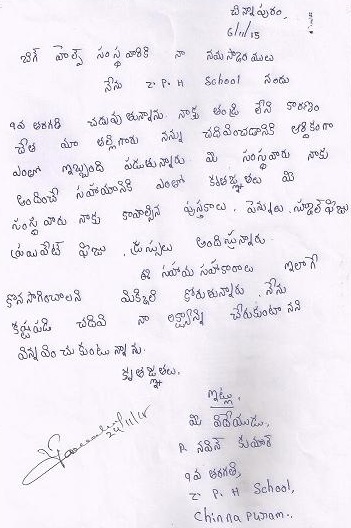 చిన్నాపురం,
6/11/15
బిగ్ హెల్ప్ సంస్థ వారికి నా నమస్కారములు
నేను Z.P.H School నందు
9వ తరగతి చదువుతున్నాను. నాకు తండ్రి లేని కారణం
చేత మా తల్లిగారు నన్ను చదివించడానికి ఆర్థికంగా
ఎంతో ఇబ్బంది పడుతున్నారు మీ సంస్థవారు నాకు
అందించే సహాయానికి ఎంతో కృతజ్ఞతలు మీ
సంస్థ వారు నాకు కావాల్సిన పుస్తకాలు, పెన్నులు, స్కూల్ ఫీజు
ట్రుయివేట్ ఫీజు, డ్రస్సులు అందిస్తున్నారు.
ఈ సహాయ సహకారాలు ఇలాగే
కొనసాగించాలని మిక్కిలి కోరుతున్నారు. నేను
కష్టపడి చదివి నా లక్ష్యాన్ని చేరుకుంటానని
విన్నవించుకుంటున్నాను.
కృతజ్ఞతలు.
ఇట్లు,
మీ విదేయుడు,
P. నవీన్ కుమార్
9వ తరగతి,
Z.P.H School,
Chinnapuram.
24/11/15